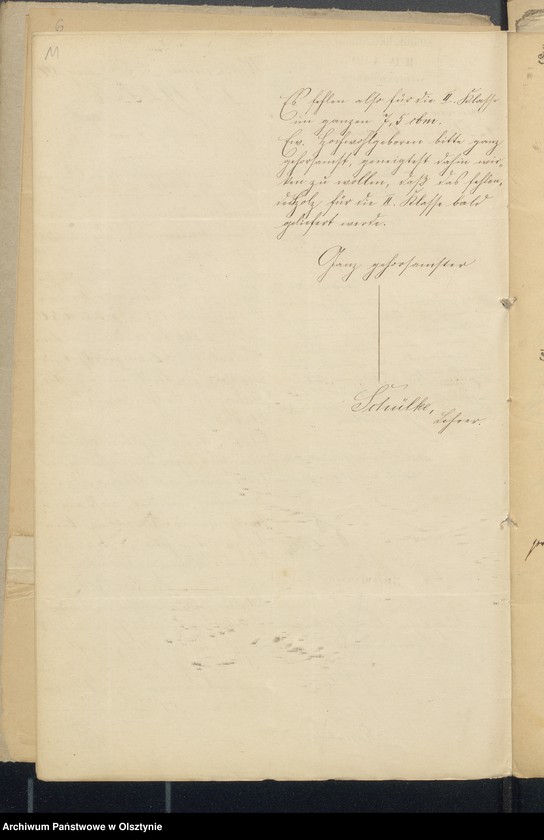 6
M
Es fehlen also für die II. Klasse
im ganzen 7,5 rbm.
Ew. Hochwohlgeboren bitte ganz
gehorsamst, geneigtest dahin wir-
ken zu wollen, daß das fehlen-
de Holz für die II. Klasse bald
geliefert werde.
Ganz gehorsamster
Schülke,
Lehrer.
Archiwum Państwowe w Olsztynie